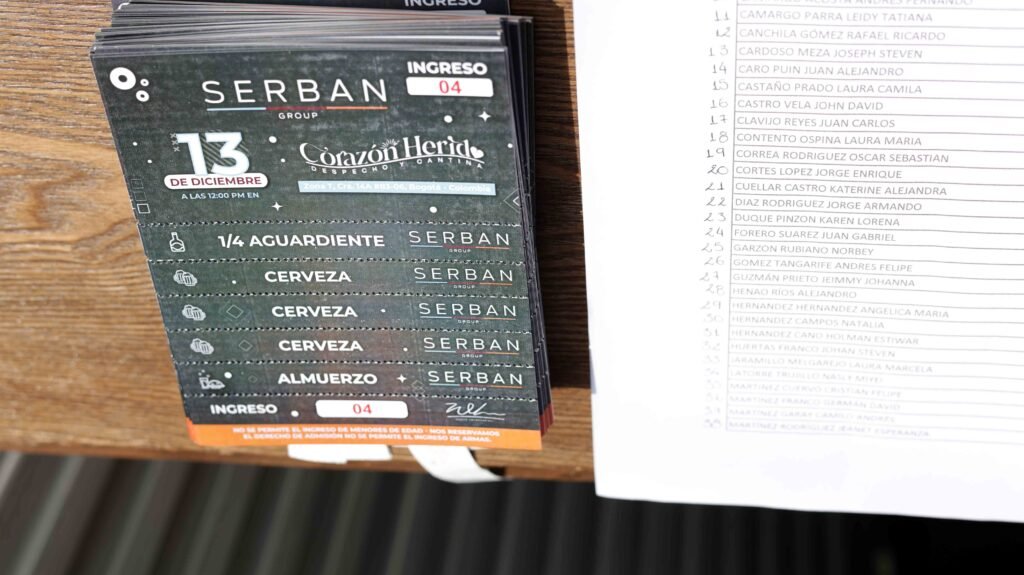 INGRESO
INGRESO
04
SERBAN
GROUP
13
DE DICIEMBRE
A LAS 12:00 PM EN
Corazón Herido
DESPECHO Y CANTINA
Zona T, Cra. 14A #83-06, Bogotá - Colombia
1/4 AGUARDIENTE
SERBAN
GROUP
CERVEZA
SERBAN
GROUP
CERVEZA
SERBAN
GROUP
CERVEZA
SERBAN
GROUP
ALMUERZO
SERBAN
GROUP
INGRESO
04
NO SE PERMITE EL INGRESO DE MENORES DE EDAD - NOS RESERVAMOS
EL DERECHO DE ADMISIÓN NO SE PERMITE EL INGRESO DE ARMAS.
ACOSTA ANDRES FERNANDO
11 CAMARGO PARRA LEIDY TATIANA
12 CANCHILA GÓMEZ RAFAEL RICARDO
13 CARDOSO MEZA JOSEPH STEVEN
14 CARO PUIN JUAN ALEJANDRO
15 CASTAÑO PRADO LAURA CAMILA
16 CASTRO VELA JOHN DAVID
17 CLAVIJO REYES JUAN CARLOS
18 CONTENTO OSPINA LAURA MARIA
19 CORREA RODRIGUEZ OSCAR SEBASTIAN
20 CORTES LOPEZ JORGE ENRIQUE
21 CUELLAR CASTRO KATERINE ALEJANDRA
22 DIAZ RODRIGUEZ JORGE ARMANDO
23 DUQUE PINZON KAREN LORENA
24 FORERO SUAREZ JUAN GABRIEL
25 GARZON RUBIANO NORBEY
26 GOMEZ TANGARIFE ANDRES FELIPE
27 GUZMÁN PRIETO JEIMMY JOHANNA
28 HENAO RIOS ALEJANDRO
29 HERNANDEZ HERNANDEZ ANGELICA MARIA
30 HERNANDEZ CAMPOS NATALIA
31 HERNANDEZ CANO HOLMAN ESTIWAR
32 HUERTAS FRANCO JOHAN STEVEN
33 JARAMILLO MELGAREJO LAURA MARCELA
LATORRE TRUJILLO NASLY MIYEI
MARTINEZ CUERVO CRISTIAN FELIPE
MARTINEZ FRANCO GERMAN DAVID
MARTINEZ GARAY CAMILO ANDRES
MARTINEZ RODRIGUEZ JEANET ESPERANZA